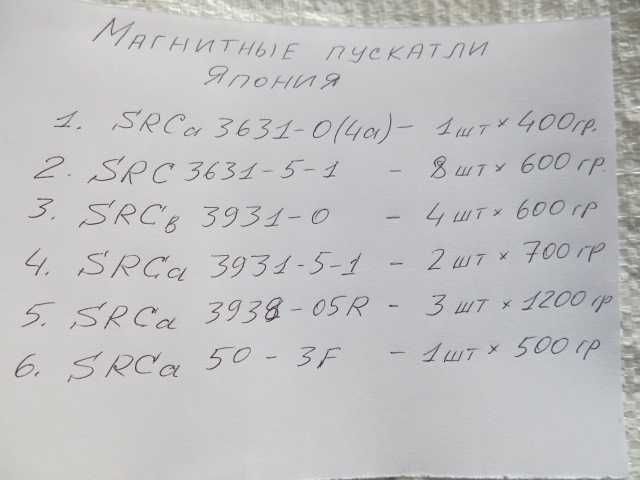 МАГНИТНЫЕ ПУСКАТЛИ
ЯПОНИЯ
1. SRCa 3631-0(4a) - 1шт × 400гр.
2. SRC 3631-5-1 - 8 шт × 600 гр.
3. SRCв 3931-0 - 4 шт × 600 гр
4. SRCa 3931-5-1 - 2 шт × 700 гр
5. SRCa 3938-05R - 3 шт × 1200 гр
6. SRCa 50-3F - 1шт × 500 гр